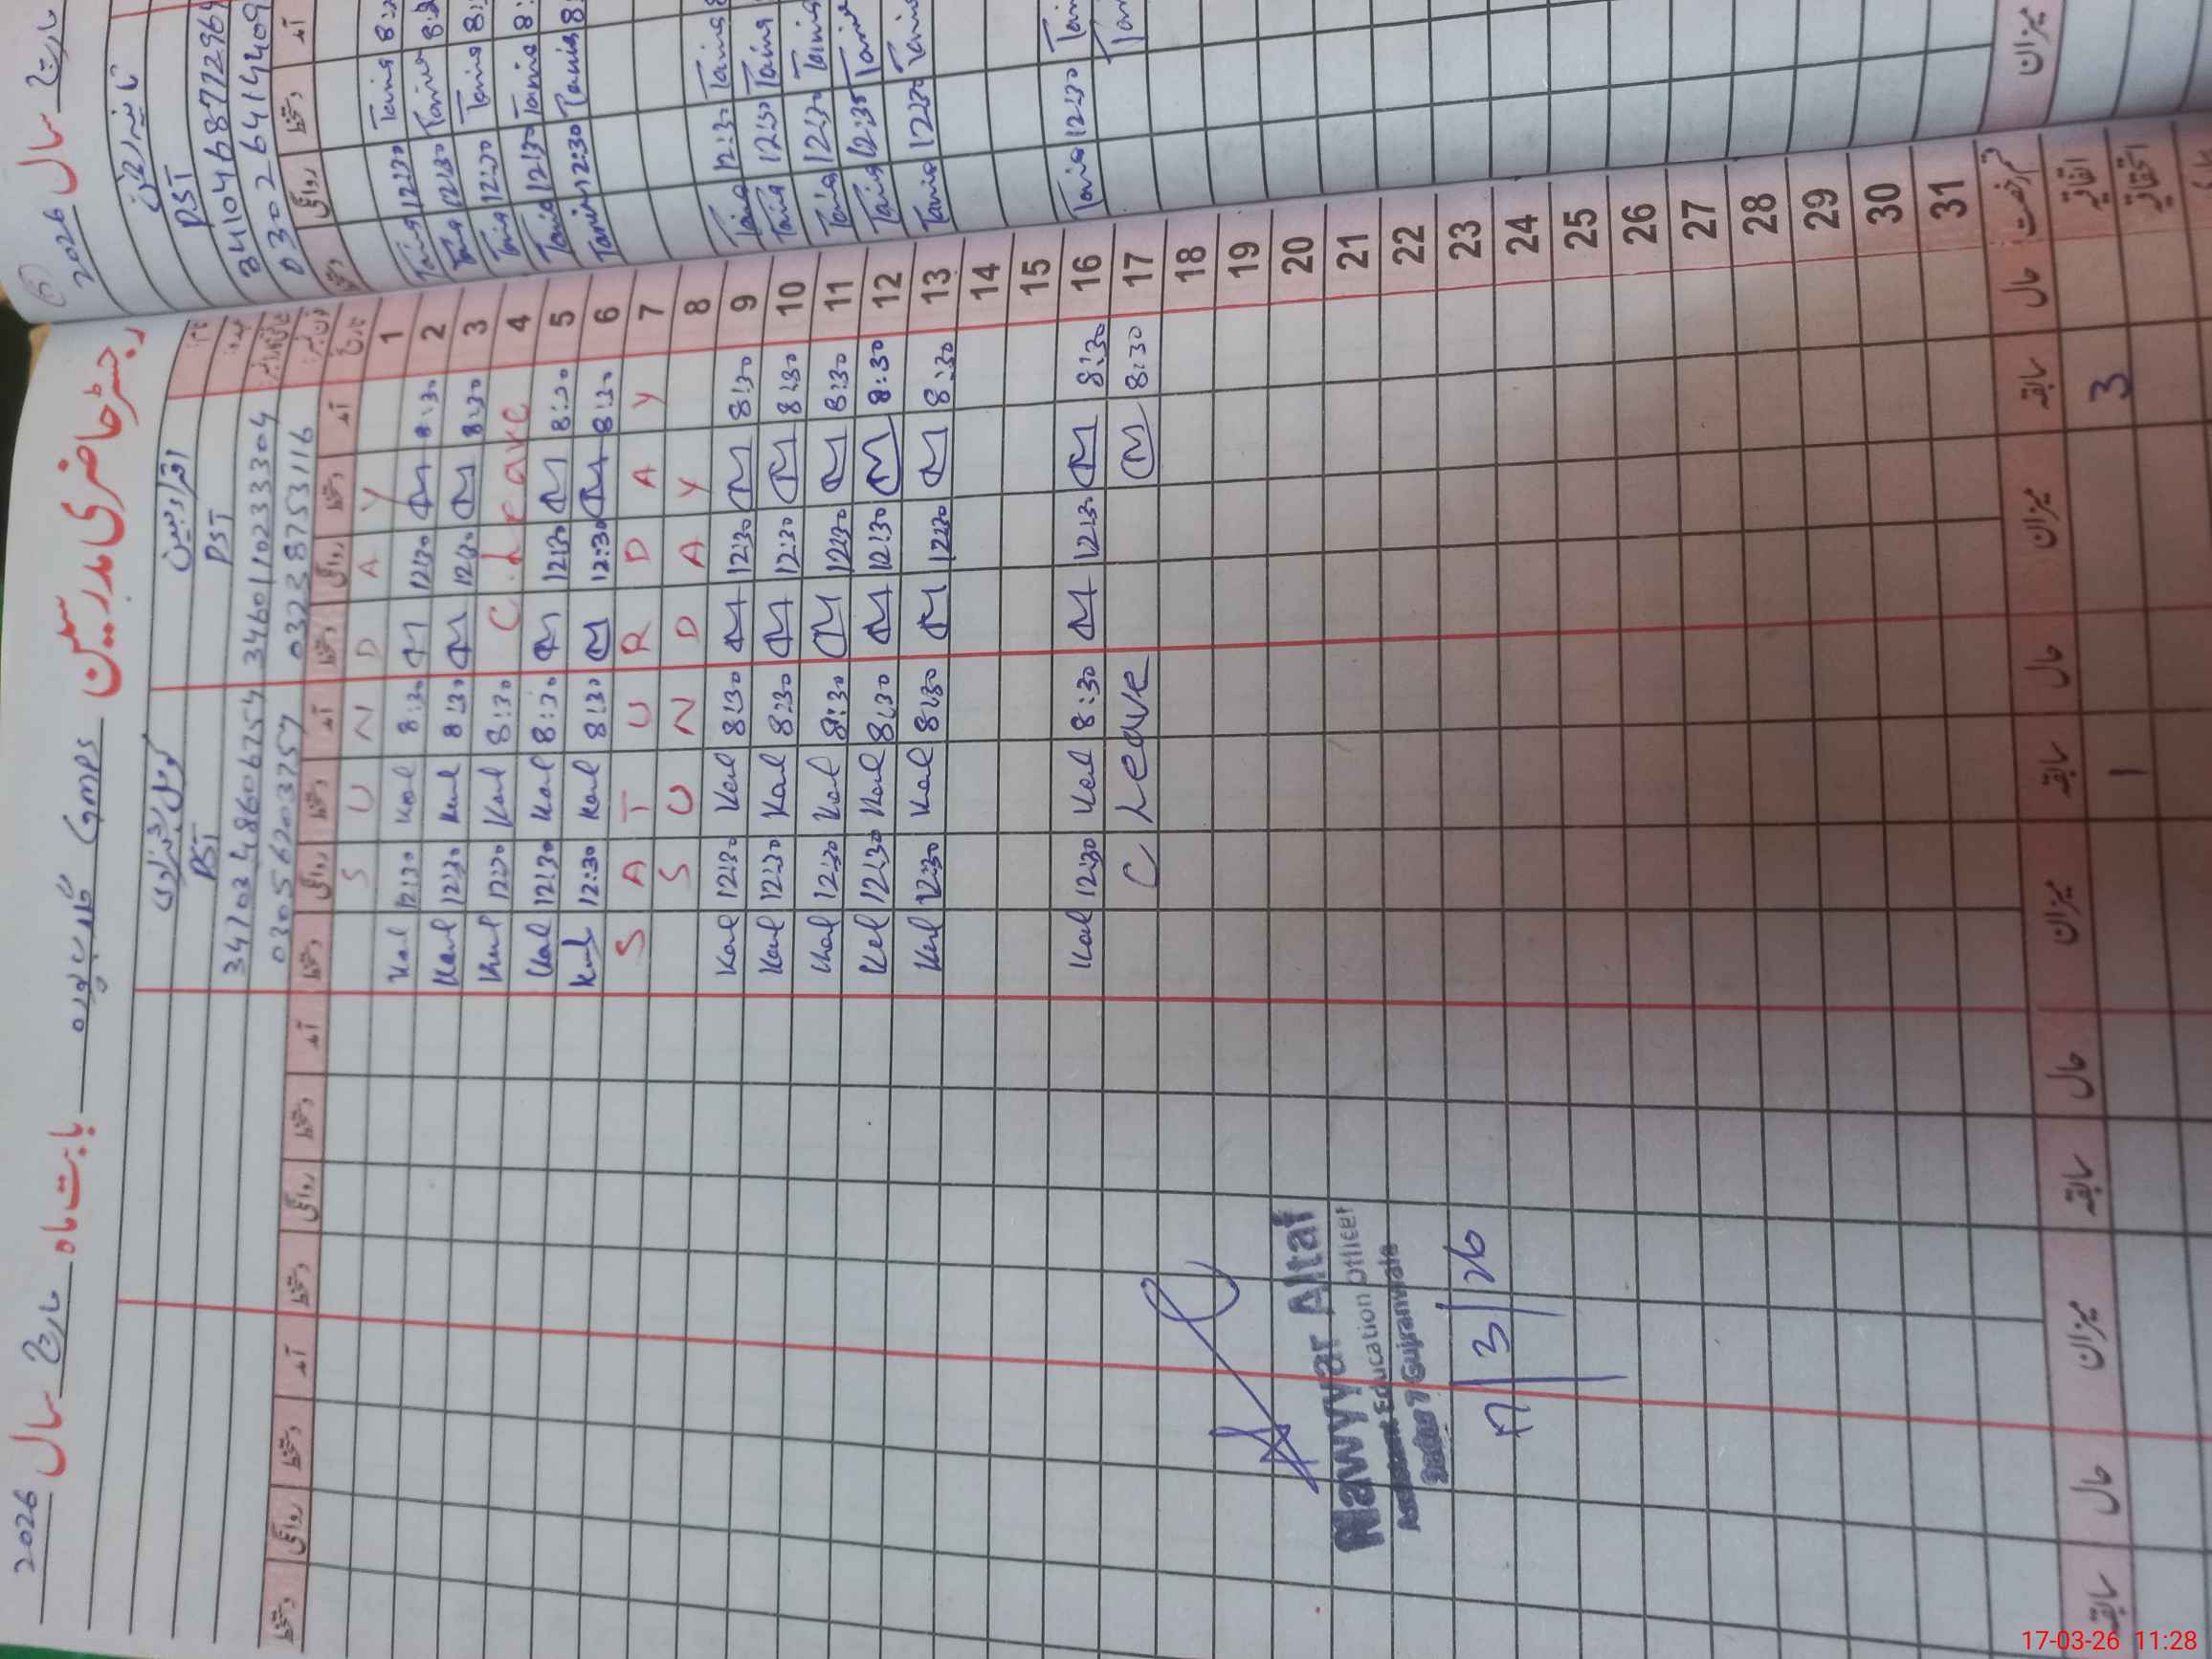 رجسٹر حاضری مدرسین گلاب پورہ GMPS بابت ماہ مارچ سال 2026
PST PST
3460110233304 3470348606754
03238753116 03056203757
تاریخ آمد دستخط روانگی دستخط آمد دستخط روانگی دستخط آمد دستخط روانگی دستخط آمد دستخط روانگی دستخط
1 S U N D A Y
2 8:30 12:30 8:30 Kal 12:30 Kal
3 8:30 12:30 8:30 Kal 12:30 Kal
4 C. Leave 8:30 Kal 12:30 Kal
5 8:30 12:30 8:30 Kal 12:30 Kal
6 8:30 12:30 8:30 Kal 12:30 Kal
7 S A T U R D A Y
8 S U N D A Y
9 8:30 12:30 8:30 Kal 12:30 Kal
10 8:30 12:30 8:30 Kal 12:30 Kal
11 8:30 12:30 8:30 Kal 12:30 Kal
12 8:30 12:30 8:30 Kal 12:30 Kal
13 8:30 12:30 8:30 Kal 12:30 Kal
14
15
16 8:30 12:30 8:30 Kal 12:30 Kal
17 8:30 C Leave
18
19
20
21
22
23
24
25
26
27
28
29
30
31
قسم رخصت حال سابقہ میزان حال سابقہ میزان حال سابقہ میزان حال سابقہ
اتفاقیہ 3 1
Nawyyar Altaf
Assistant Education Officer
Gujranwala
17/3/26
مارچ سال 2026
PST
3410468772964
03026414409
آمد دستخط روانگی دستخط
Tania 12:30 Tania
Tania 12:30 Tania
Tania 12:30 Tania
Tania 12:30 Tania
Tania 12:30 Tania
Tania 12:30 Tania
Tania 12:30 Tania
Tania 12:30 Tania
Tania 12:35 Tania
Tania 12:30 Tania
Tania 12:30 Tania
میزان
17-03-26 11:28